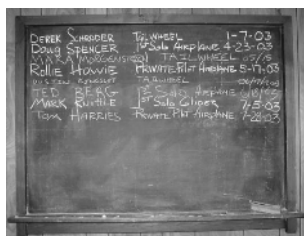 DEREK SCHRADER TAILWHEEL 1-7-03
Doug SPENCER 1st Solo AIRPLANE 4-23-03
MARA TAILWHEEL 05/15
Rollie HOWIE PRIVATE PILOT AIRPLANE 5-17-03
TAILWHEEL
TED BERG 1ST SOLO AIRPLANE
MARK 1ST SOLO GLIDER 7-5-03
TOM HARRIES PRIVATE PILOT AIRPLANE 7-28-03